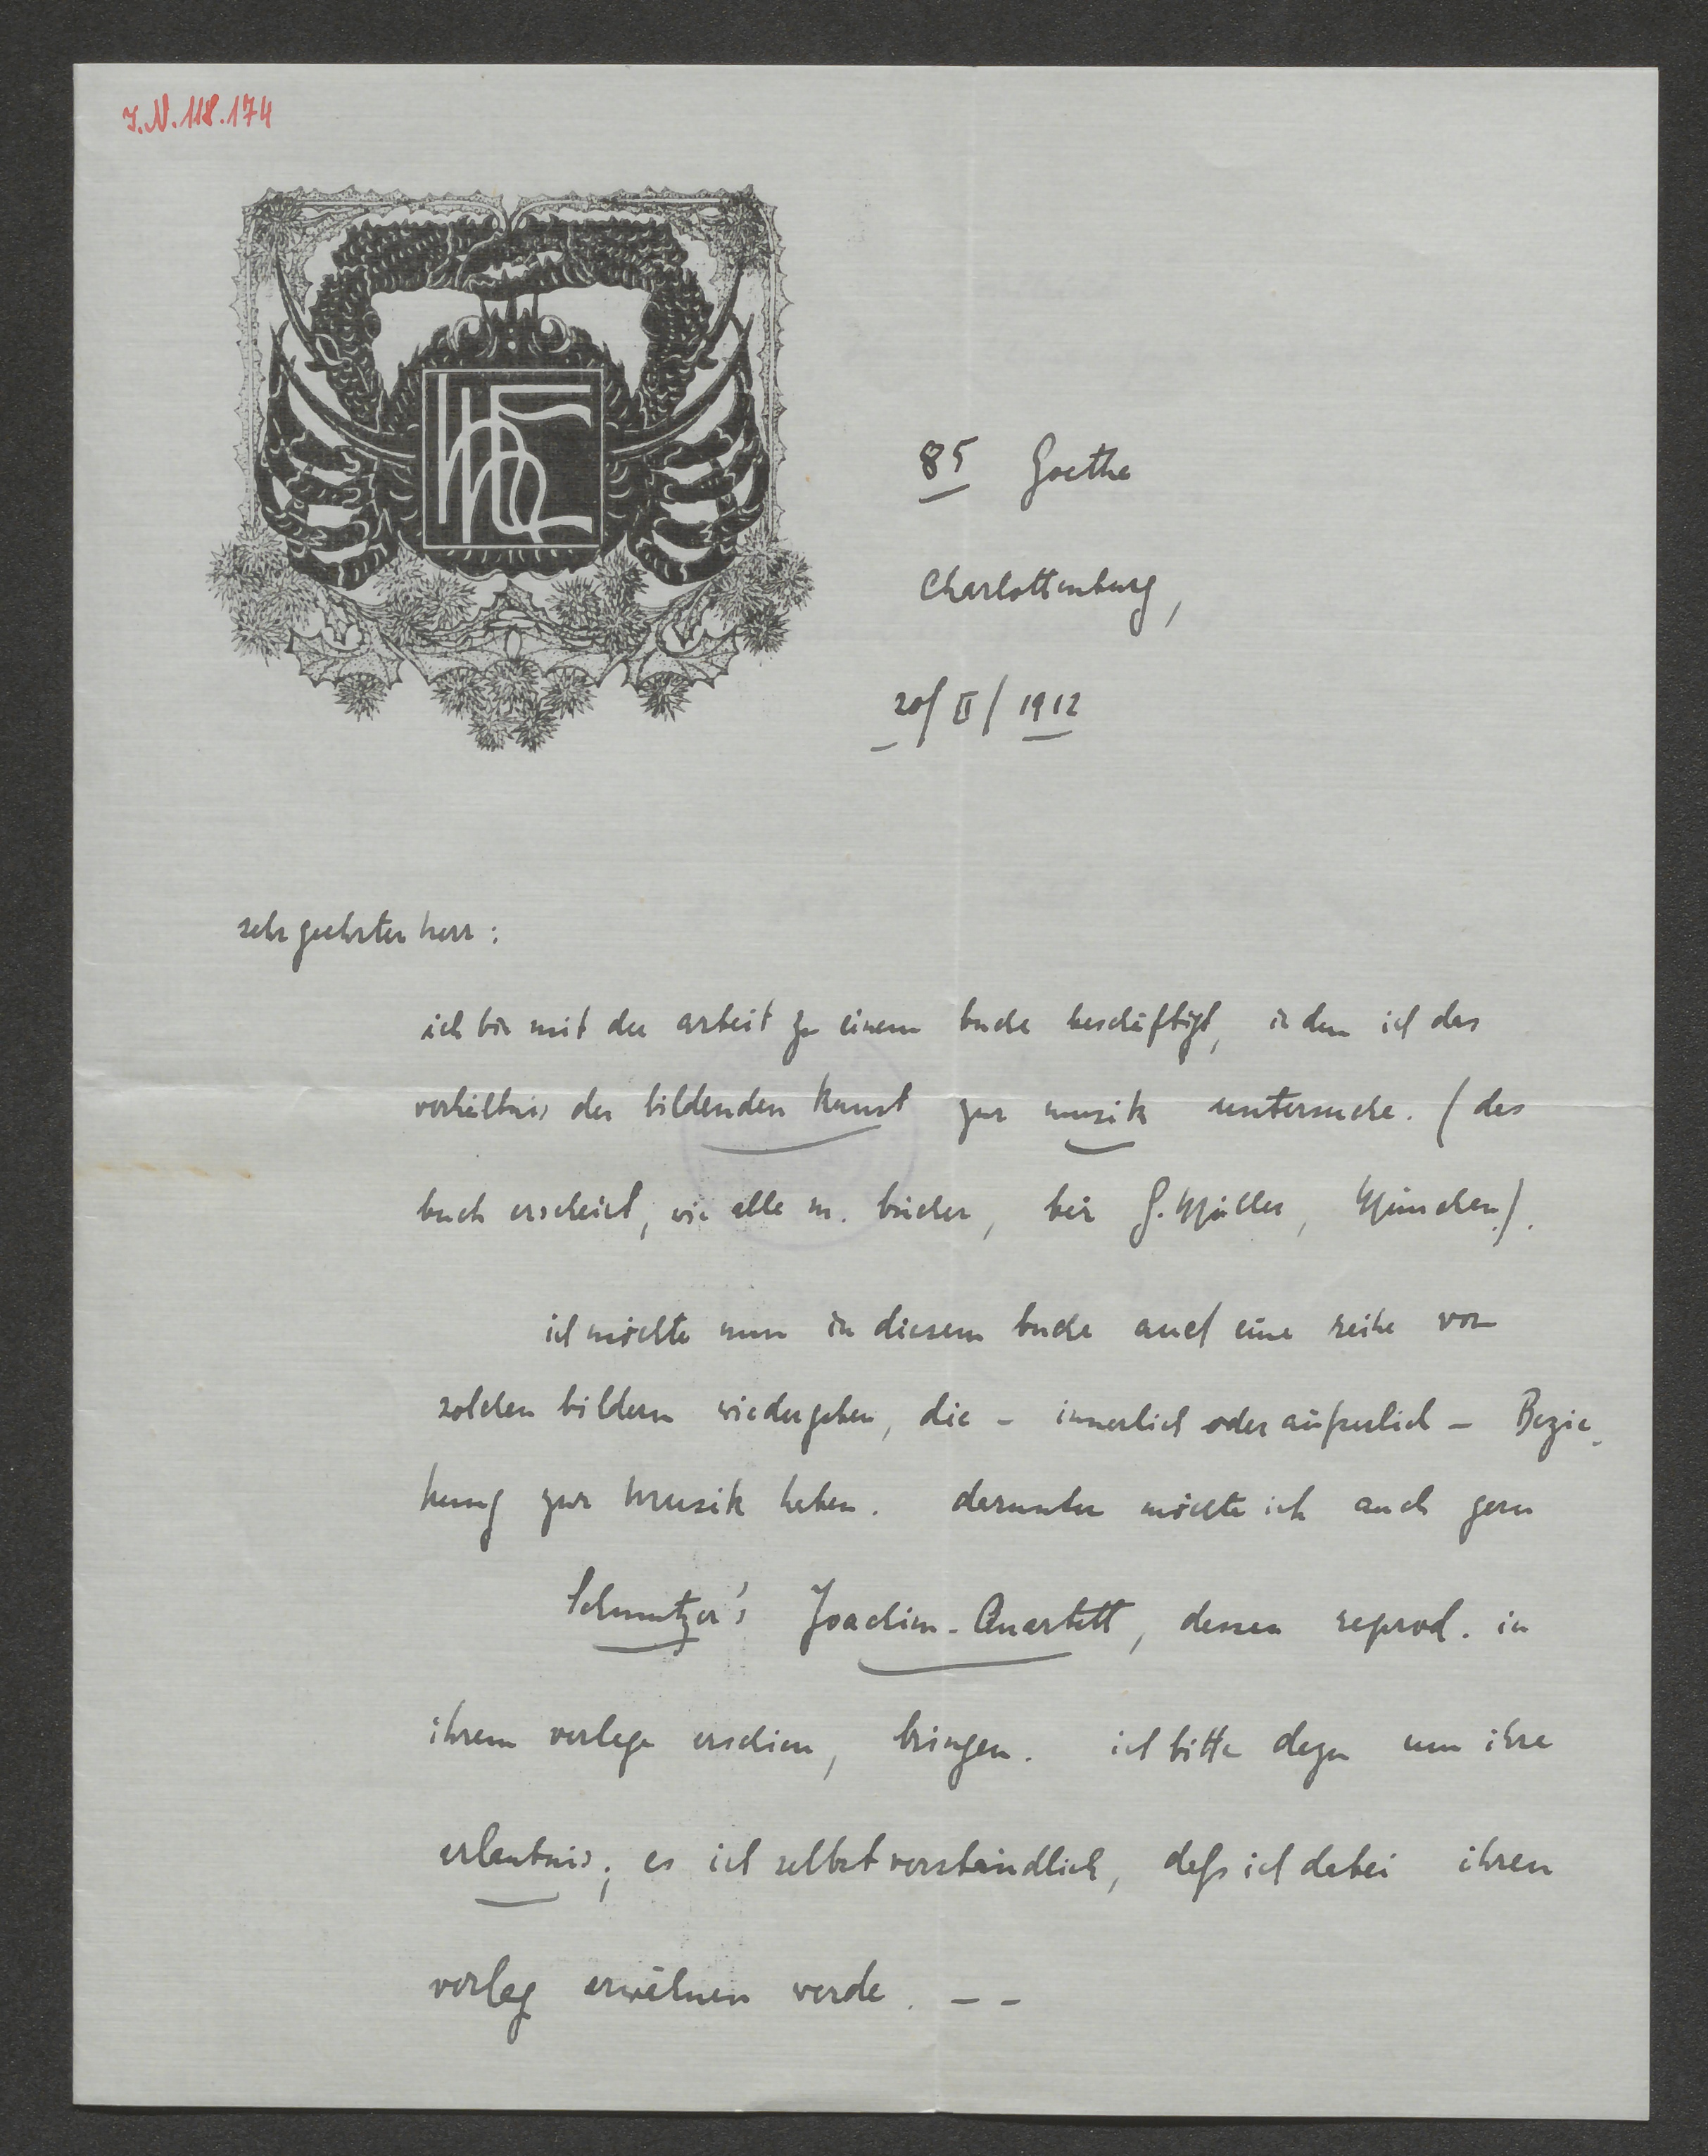 I.N. 118.174
85 Goethe
Charlottenburg,
20/ II / 1912
sehr geehrter herr:
ich bin mit der arbeit zu einem buche beschäftigt, in dem ich das
verhältnis der bildenden kunst zur musik untersuche. (das
buch erscheint, wie alle m. bücher, bei G. Müller, München).
ich möchte nun in diesem buche auch eine reihe von
solchen bildern wiedergeben, die – innerlich oder äußerlich – Bezie-
hung zur Musik haben. darunter möchte ich auch gern
Schmutzer's Joachim-Quartett, dessen reprod. in
ihrem verlage erschien, bringen. ich bitte dazu um ihre
erlaubnis; es ist selbstverständlich, daß ich dabei ihren
verlag erwähnen werde. – –